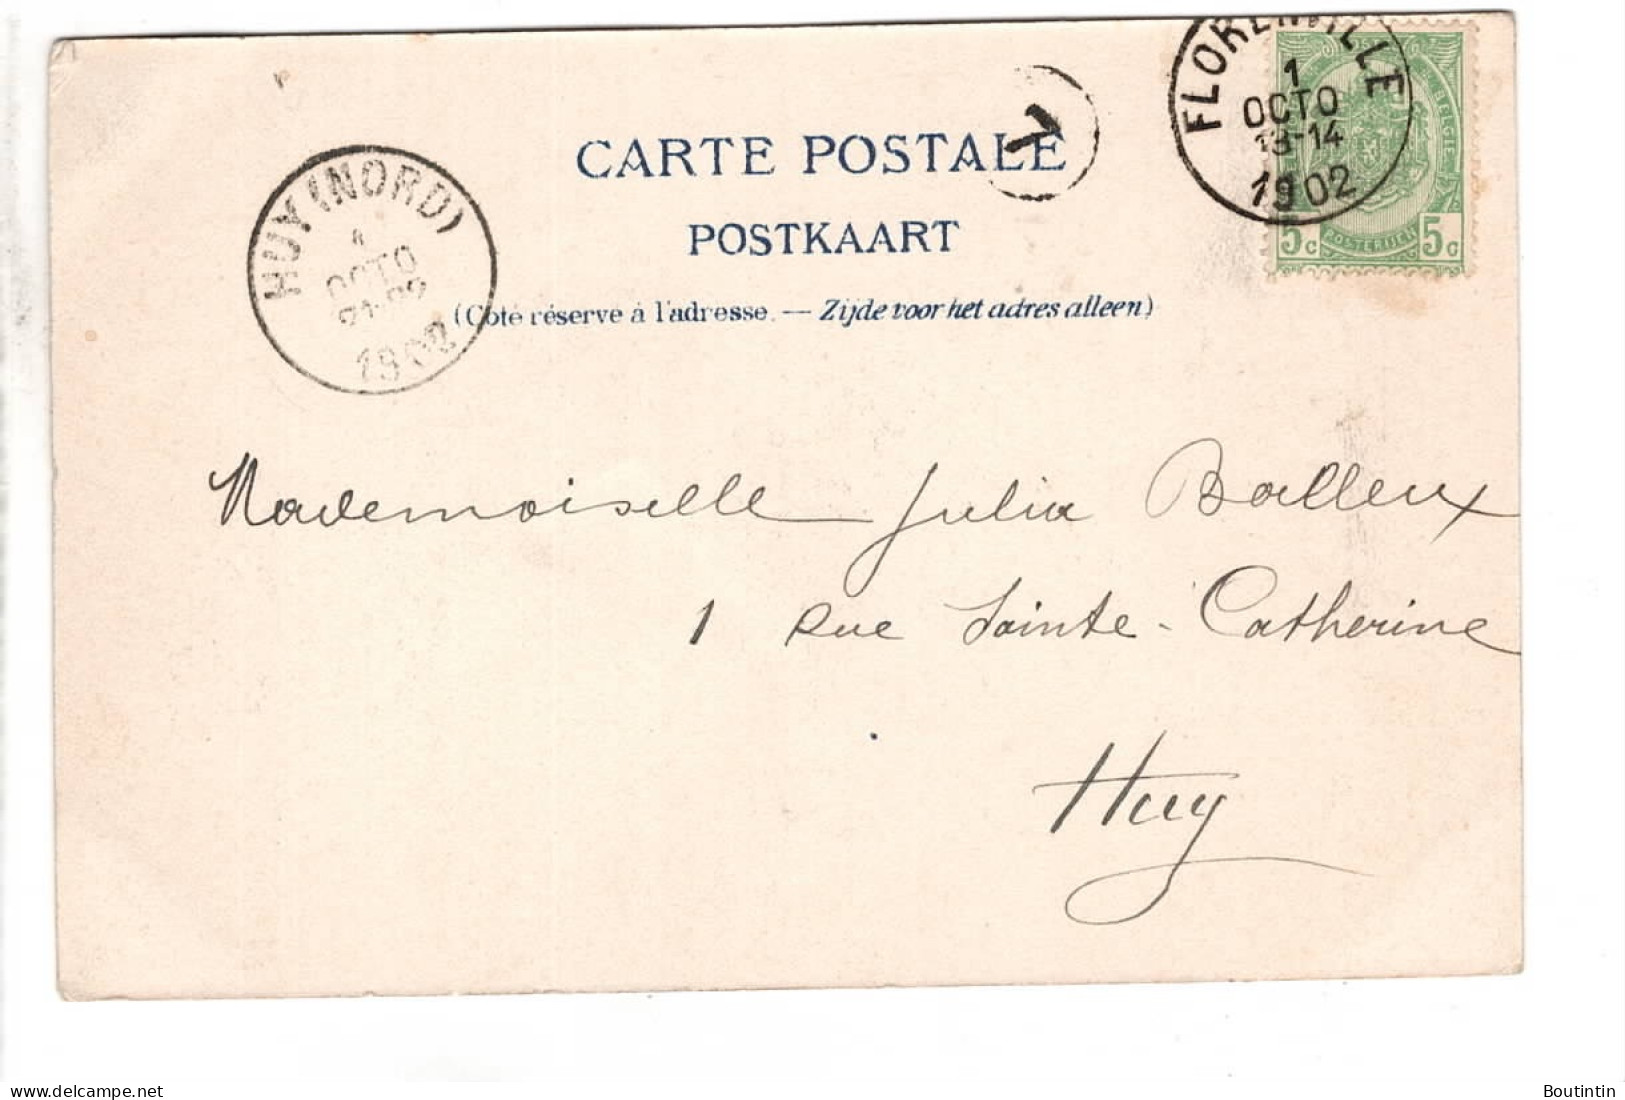 FLORENVILLE
1
OCTO
13-14
1902
BELGIE
5c POSTERIJEN 5c
1
CARTE POSTALE
POSTKAART
(Côté réservé à l'adresse. — Zijde voor het adres alleen)
HUY (NORD)
1
OCTO
1902
Mademoiselle Julia Balleux
1 Rue Sainte-Catherine
Huy
www.delcampe.net
Boutintin